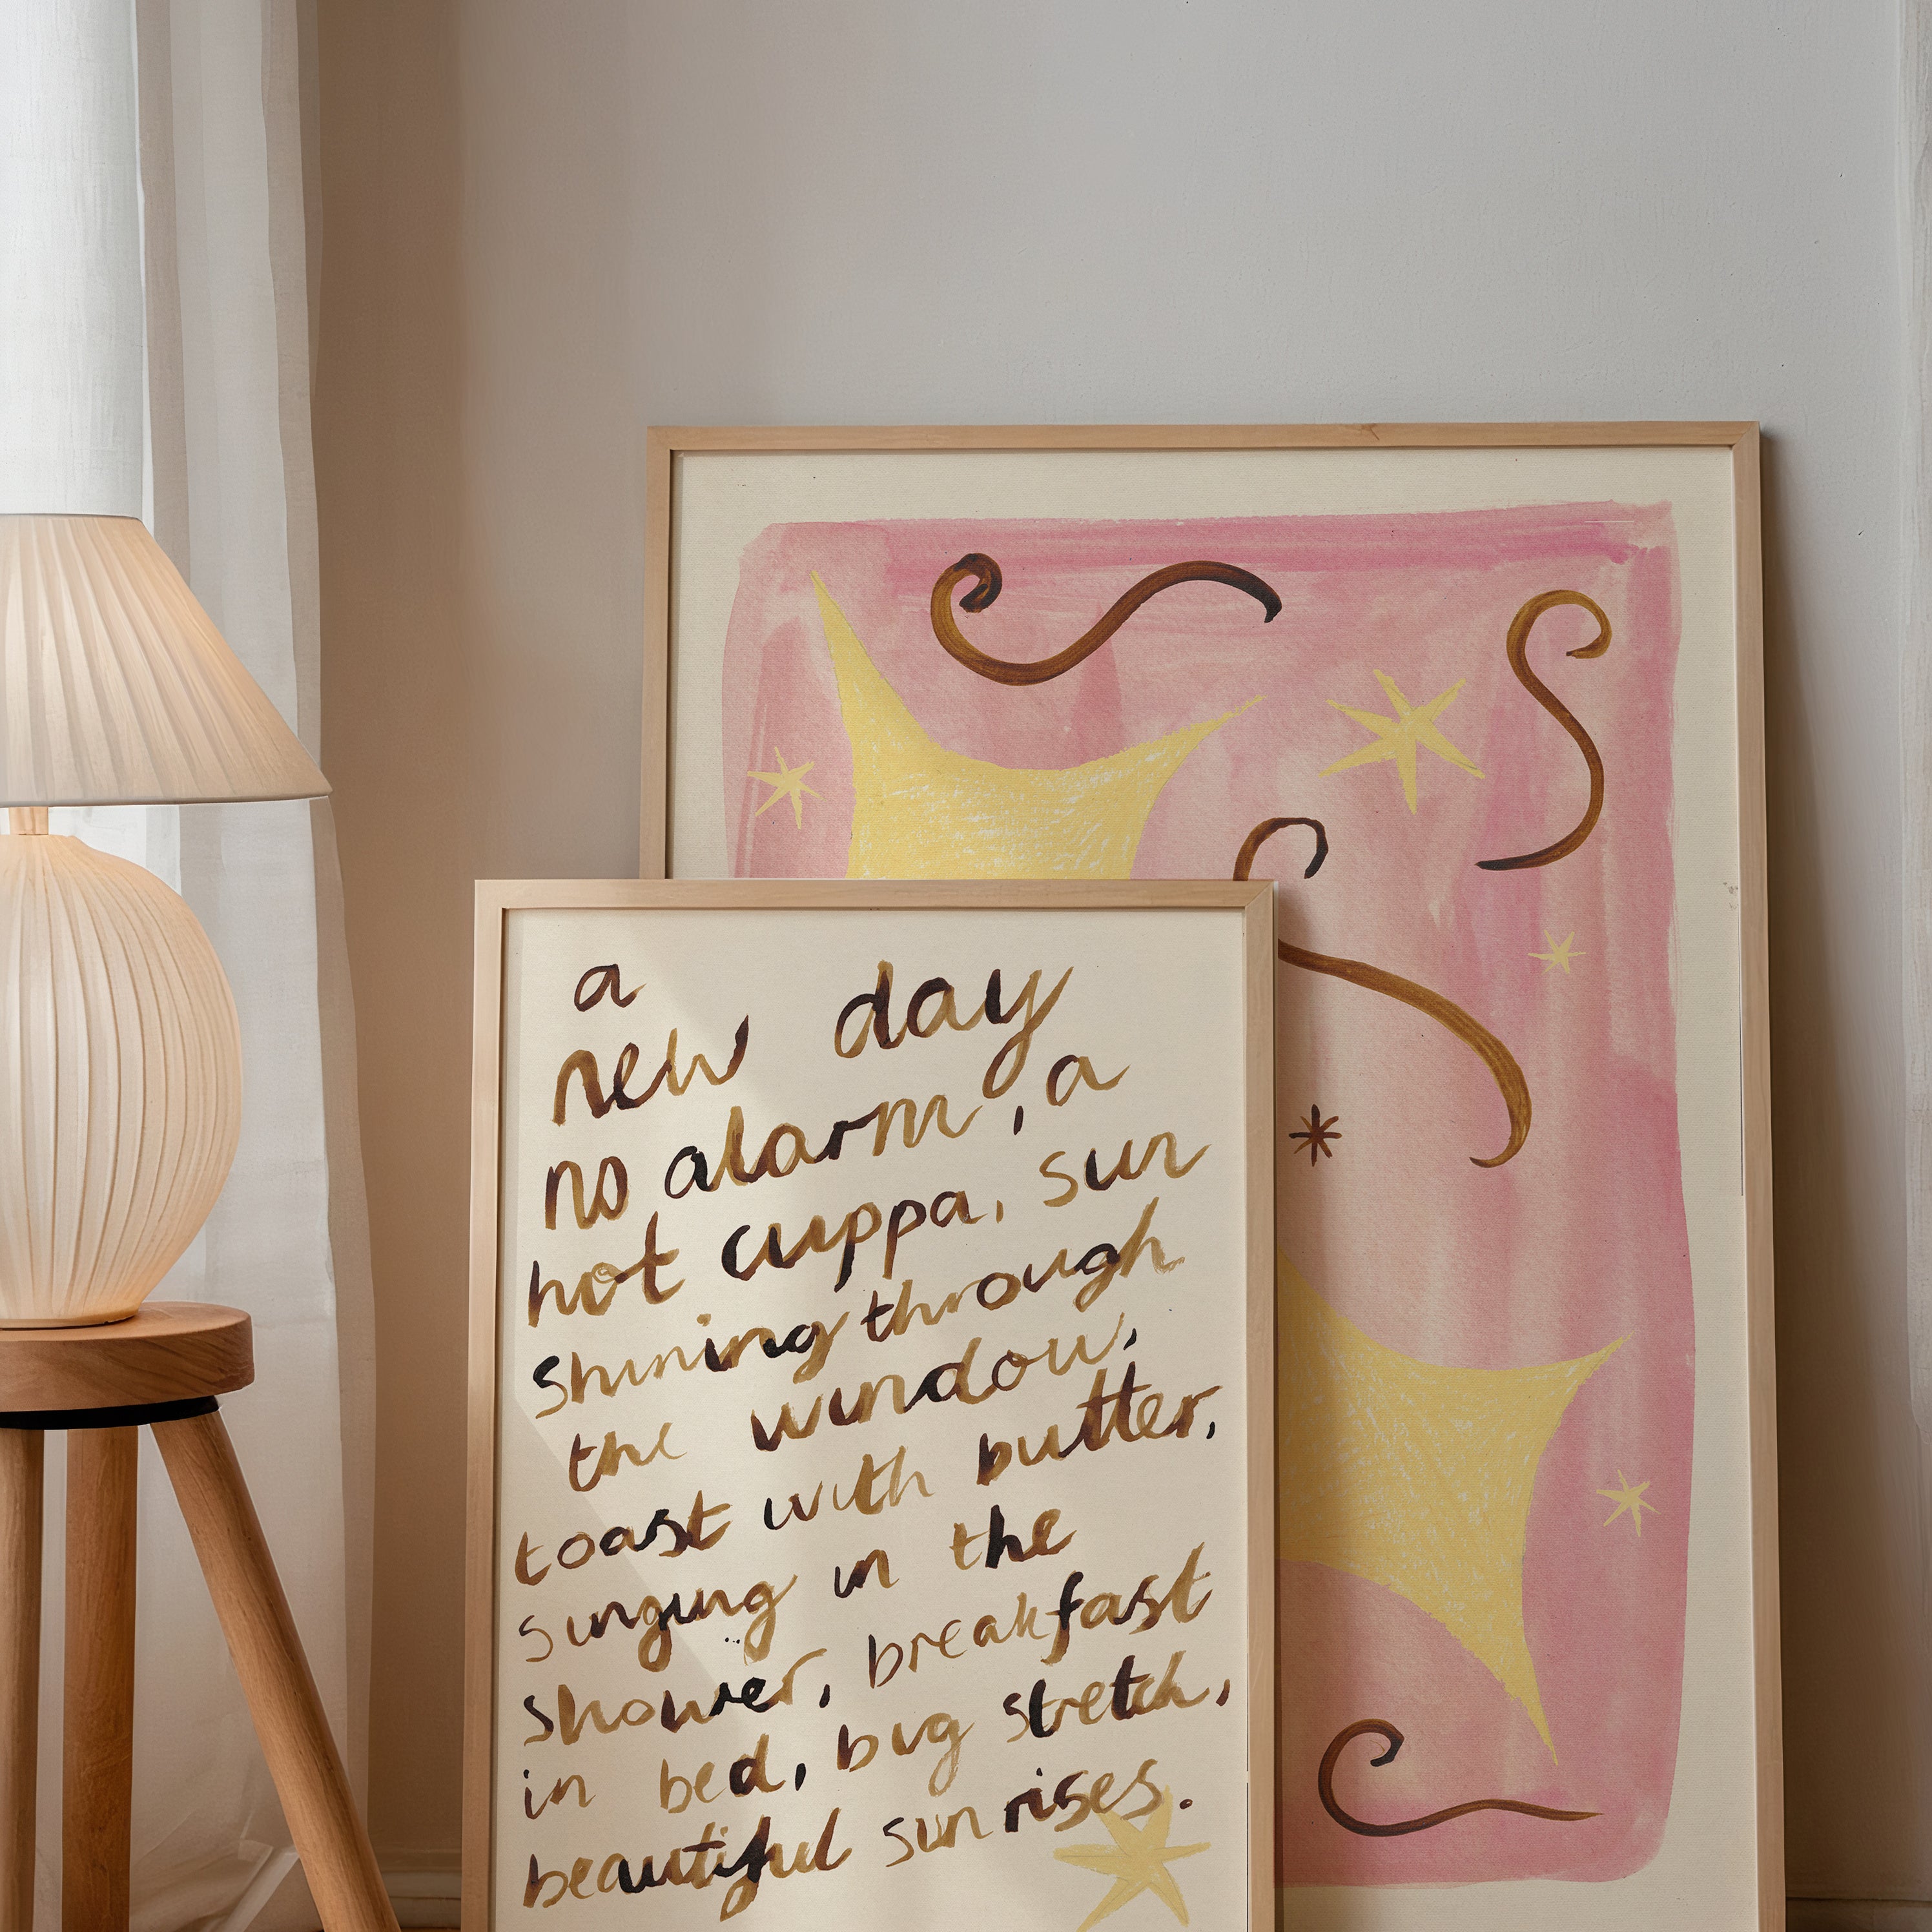 a
new day
no alarm, a
hot cuppa, sun
shining through
the window,
toast with butter,
singing in the
shower, breakfast
in bed, big stretch,
beautiful sunrises.